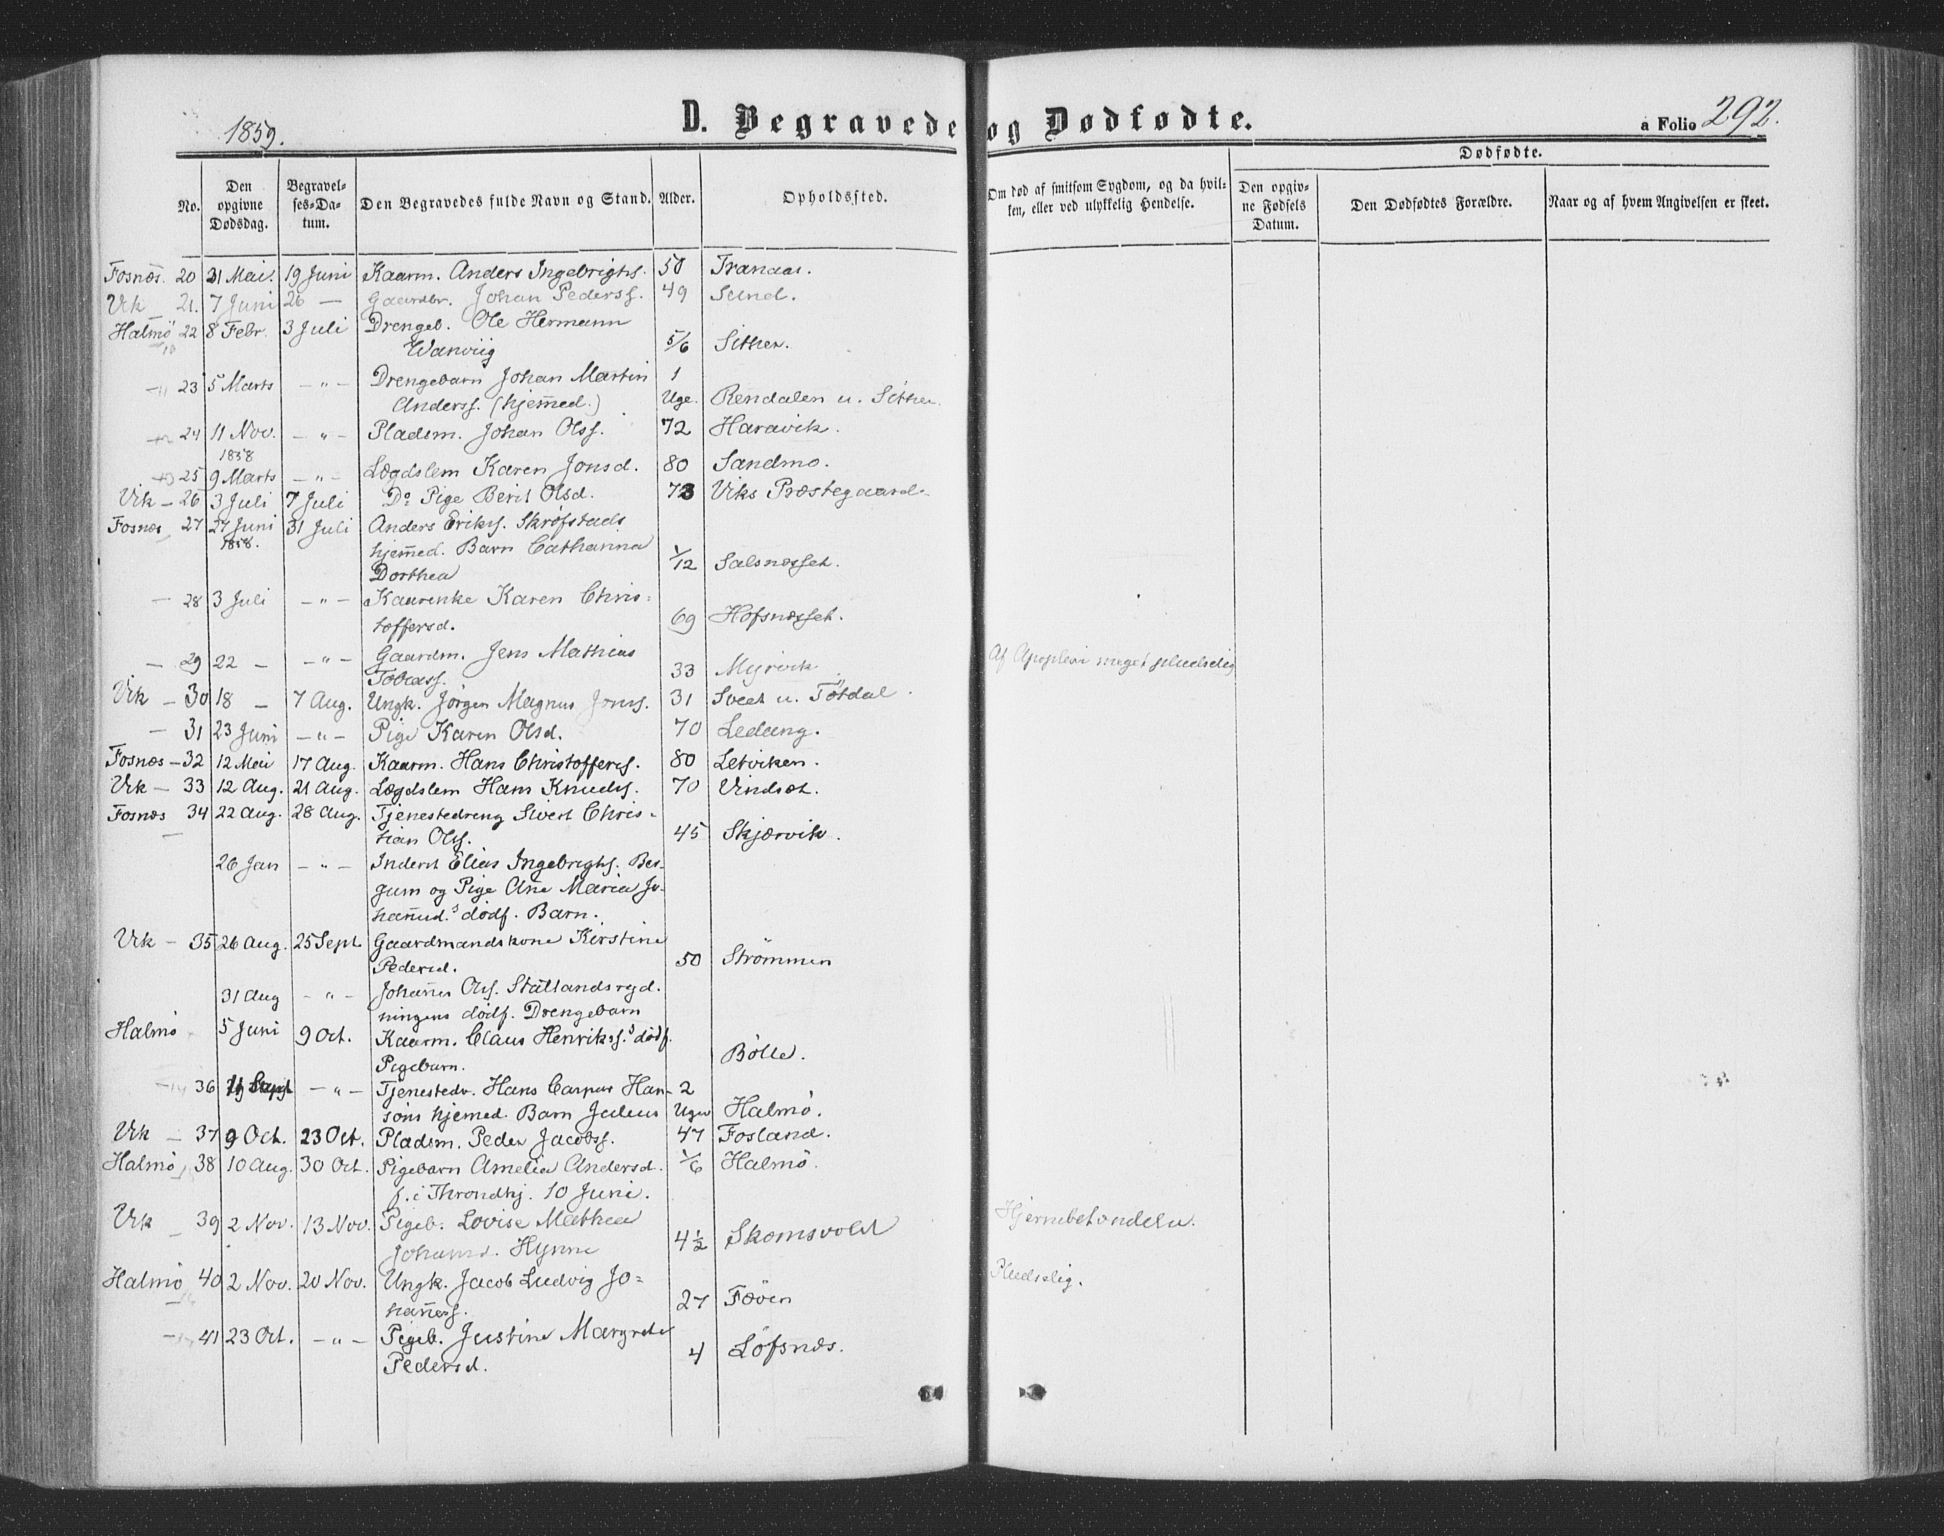 1859.
D. Begravede og Dødfødte.
a Folio 292.
No.
Den opgivne Dødsdag.
Begravelses-Datum.
Den Begravedes fulde Navn og Stand.
Alder.
Opholdssted.
Om død af smitsom Sygdom, og da hvilken, eller ved ulykkelig Hendelse.
Dødfødte.
Den opgivne Fødsels Datum.
Den Dødfødtes Forældre.
Naar og af hvem Angivelsen er skeet.
Fosnæs. 20 31 Mai. 19 Juni Kaarm. Anders Ingebrigts. 50 Tranaas.
Vik 21. 7 Juni 26 — Gaardbr. Johan Peders. 49 Sund.
Halmö 22 8 Febr. 3 Juli Drengeb. Ole Hermann
Wanviig 5/6 Sitter.
23 5 Marts — " — Drengebarn Johan Martin 1
Anders. (hjemed.) Uge. Rendalen u. Sitter
24 11 Nov. — " — Pladsm. Johan Ols. 72 Haravik.
1858
25 9 Marts — " — Lægdslem Karen Jonsd. 80 Sandmo.
Vik — 26 3 Juli 7 Juli Do Pige Berit Olsd. 73 Viks Præstegaard.
Fosnæs 27 27 Juni 31 Juli Anders Eriks. Skrøfstads
1858. hjemed. Barn Cathanna
Dorthea 1/12 Salsnæsset.
— 28 3 Juli — " — Kaarenke Karen Chris-
toffersd. 69 Hofsnæsset.
— 29 22 — — " — Gaardm. Jens Mathias
Tobiass. 33 Myrvik Af Apoplexi meget pludselig
Vik — 30 18 — 7 Aug. Ungk. Jørgen Magnus Jons. 31 Sveet u. Tötdal.
— 31 23 Juni — " — Pige Karen Olsd. 70 Ledang.
Fosnæs — 32 12 Mai 17 Aug. Kaarm. Hans Christoffers. 80 Letviken.
Vik — 33 12 Aug. 21 Aug. Lægdslem Hans Knuds. 70 Vindset.
Fosnæs 34 22 Aug. 28 Aug. Tjenestedreng Sivert Chris-
tian Ols. 45 Skjærvik.
26 Jan — " — Inderst Elias Ingebrigts. Ber-
gum og Pige Ane Maria Jo-
hansd.s dödf. Barn.
Vik — 35 26 Aug. 25 Sept. Gaardmandskone Kirstine
Pedersd. 50 Strömmen
31 Aug — " — Johanes Ols. Statlandsryd-
ningens dödf. Drengebarn
Halmö 5 Juni 9 Oct. Kaarm. Claus Henrikss.s dödf.
Pigebarn. Bölle.
36 Sept — " — Tjenestedr. Hans Caspar Han- 2
sons hjemed. Barn Julius Uger Halmö.
Vik — 37 9 Oct. 23 Oct. Pladsm. Peder Jacobs. 47 Fosland.
Halmö 38 10 Aug. 30 Oct. Pigebarn Amelia Andersd. 1/6 Halmö.
f. i Throndhj. 10 Juni.
Vik — 39 2 Nov. 13 Nov. Pigeb. Lovise Mathea
Johansd. Hynne 4½ Skomsvold Hjernebetændelse.
Halmö 40 2 Nov. 20 Nov. Ungk. Jacob Ludvig Jo-
hanes. 27 Fæöen Pludselig.
41 23 Oct. — " — Pigeb. Justine Margrete
Pedersd. 4 Löfsnæs.